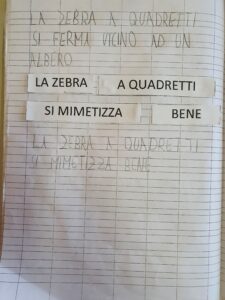 LA ZEBRA A QUADRETTI
SI FERMA VICINO AD UN
ALBERO
LA ZEBRA A QUADRETTI
SI MIMETIZZA BENE
LA ZEBRA A QUADRETTI
SI MIMETIZZA BENE